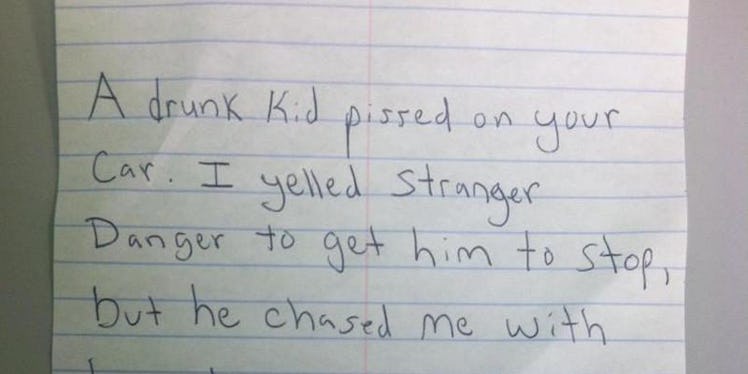 A drunk Kid pissed on your
Car. I yelled Stranger
Danger to get him to stop,
but he chased me with